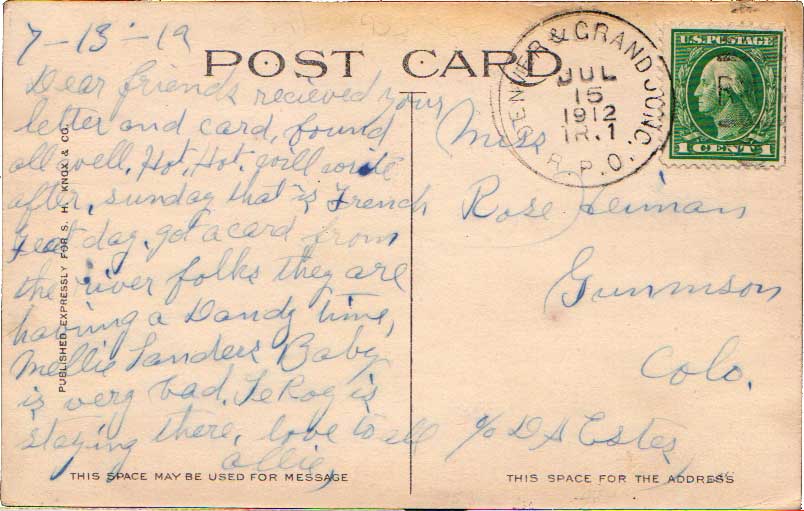 7-13-19
POST CARD
Dear friends recieved your
letter and card, found
all well, Hot, Hot, will write
after, sunday that is French
Feat day, got a card from
the river folks they are
having a Dandy time,
Mellie Landers Baby
is very bad. LeRoy is
staying there, love to all
allie,
THIS SPACE MAY BE USED FOR MESSAGE
PUBLISHED EXPRESSLY FOR S. H. KNOX & CO.
DENVER & GRAND JUNC.
JUL
15
1912
TR.1
R.P.O.
U.S. POSTAGE
1 CENT 1
Miss
Rose Heiman
Gunnison
Colo.
c/o D A Estes
THIS SPACE FOR THE ADDRESS